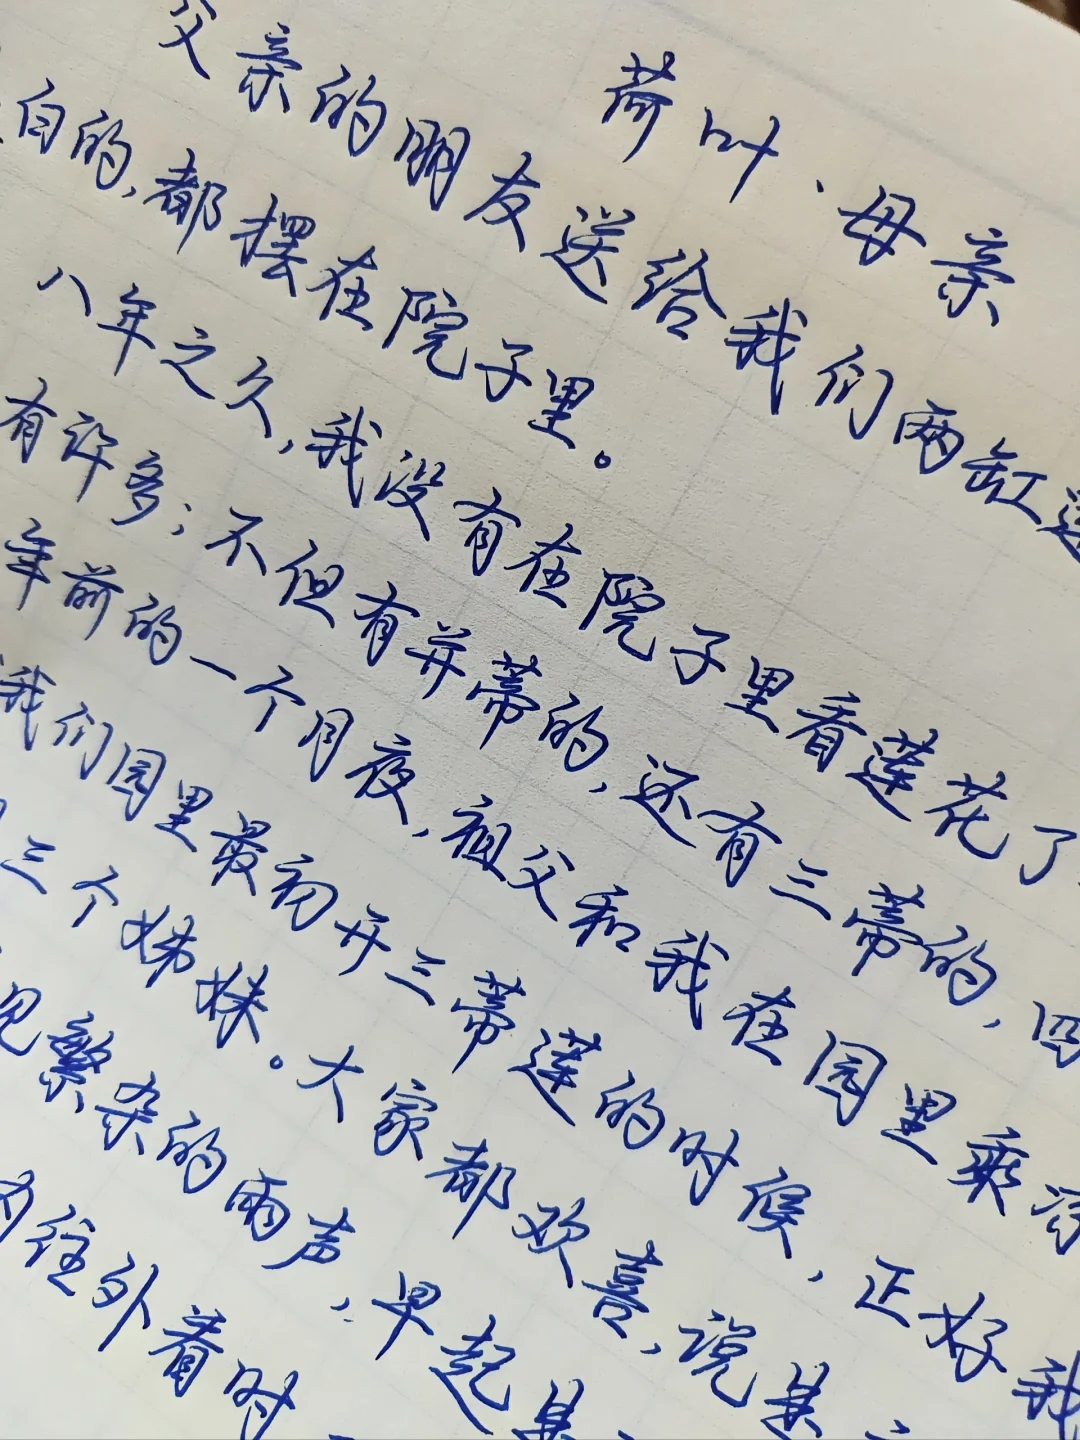 荷叶、母亲
父亲的朋友送给我们两缸莲
白的，都摆在院子里。
八年之久，我没有在院子里看莲花了
有许多；不但有并蒂的，还有三蒂的，四
年前的一个月夜，祖父和我在园里乘凉
我们园里最初开三蒂莲的时候，正好我
三个姊妹。大家都欢喜，说是
见繁杂的雨声，早起是
内往外看时